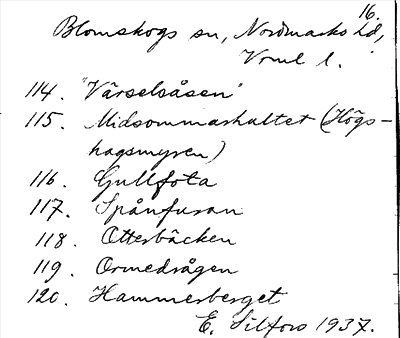 16.
Blomskogs sn, Nordmarks hd,
Vrml l.
114. "Värselsåsen"
115. Midsommarhultet (Högs-
hagsmyren)
116. Gullfota
117. Spånfuran
118. Otterbäcken
119. Ormedrågen
120. Hammersberget
E. Silfors 1937.